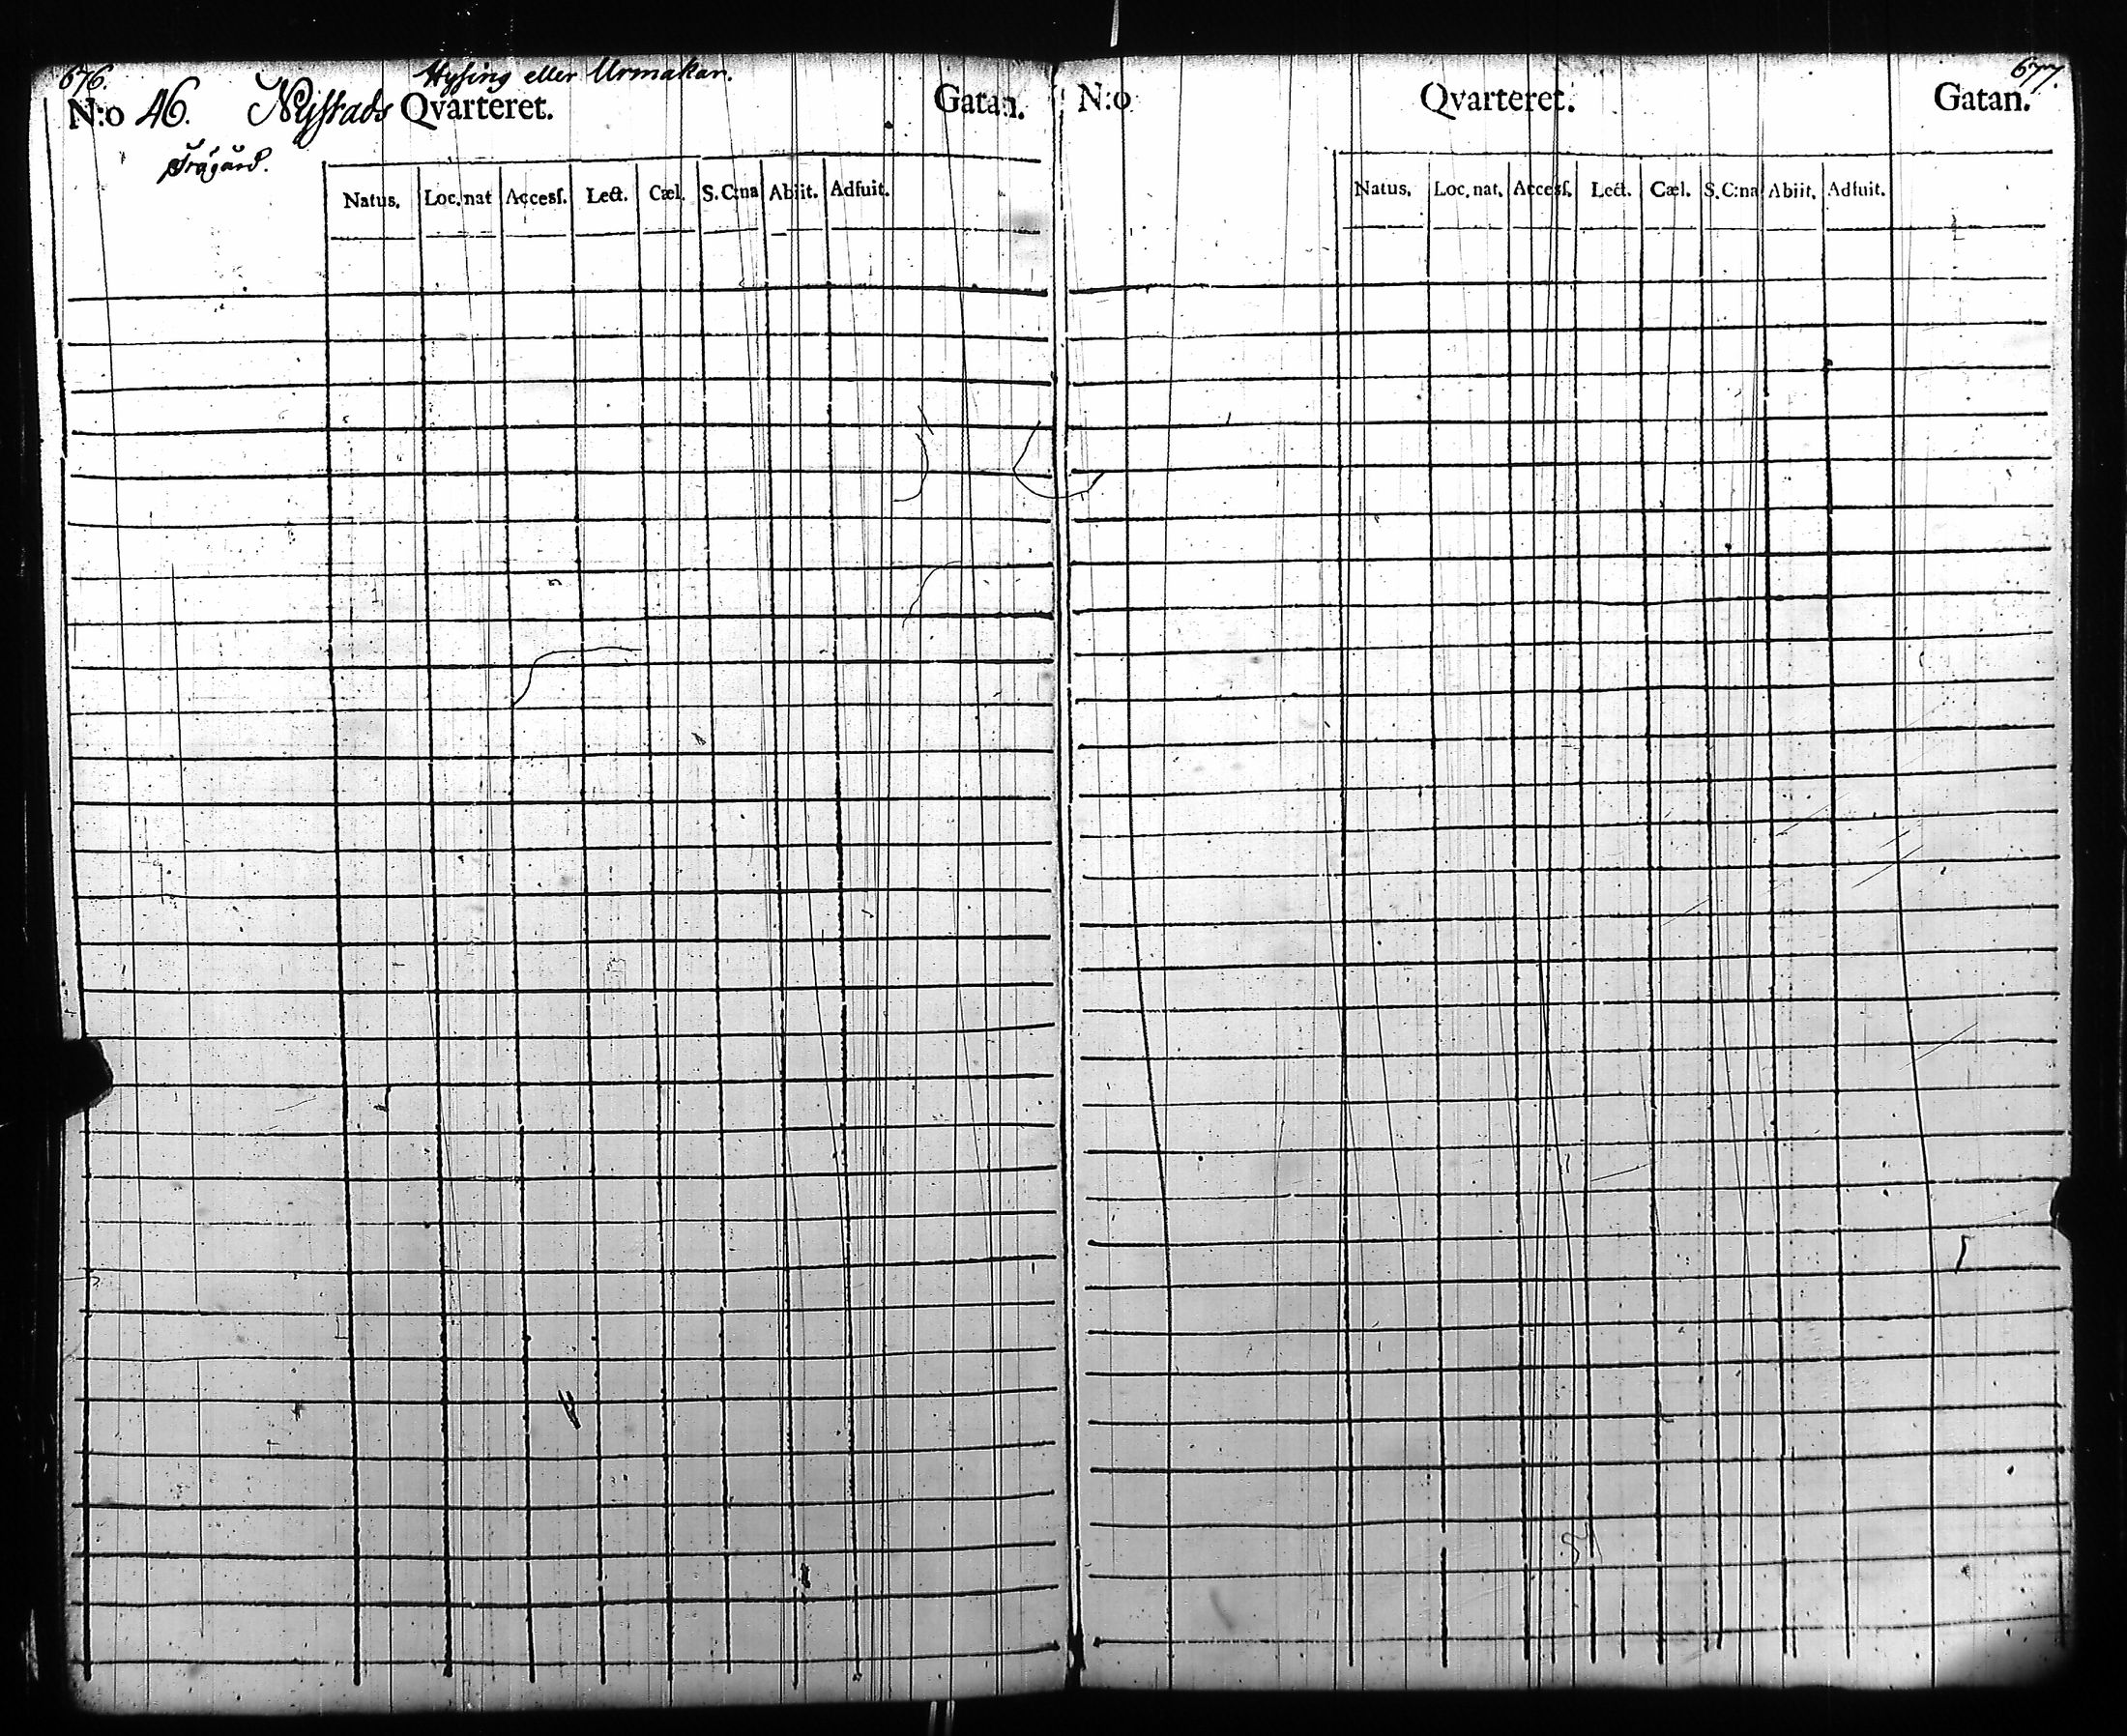 676.
Hysing eller Urmakar.
N:o 46. Nystads Qvarteret. Gatan.
Trägård.
Natus. Loc. nat Accesſ. Lect. Cæl. S. C:na Abiit. Adfuit.
677.
N:o Qvarteret. Gatan.
Natus. Loc. nat. Accesſ. Lect. Cæl. S. C:na Abiit. Adfuit.